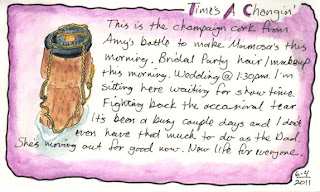 Time's A Changin'
This is the champaign cork from
Amy's bottle to make Mumosa's this
morning. Bridal Party hair/makeup
this morning. Wedding @ 1:30pm. I'm
sitting here waiting for show time.
Fighting back the occasional tear.
It's been a busy couple days and I don't
even have that much to do as the Dad.
She's moving out for good now. New life for everyone.
6-4
2011